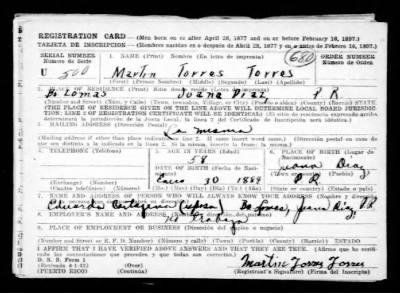 REGISTRATION CARD—(Men born on or after April 28, 1877 and on or before February 16, 1897.)
TARJETA DE INSCRIPCION—(Hombres nacidos en o después de Abril 28, 1877 y en o antes de Febrero 16, 1897.)
SERIAL NUMBER 1. NAME (Print) Nombre (En letra de imprenta) 680 ORDER NUMBER
Número de Serie Número de Orden
U 500 Martin Torres Torres
(First) (Nombre) (Middle) (Segundo) (Last) (Apellido)
2. PLACE OF RESIDENCE (Print)
Bo Lomas Juana Diaz P R
(Number and Street) (Town, Township, Village, or City) (County) (Barrio) STATE
(THE PLACE OF RESIDENCE GIVEN ON THE LINE ABOVE WILL DETERMINE LOCAL BOARD JURISDICTION; LINE 2 OF REGISTRATION CERTIFICATE WILL BE IDENTICAL)
3. MAILING ADDRESS (Dirección Postal)
La misma
4. TELEPHONE (Teléfono) 5. AGE IN YEARS (Edad) 6. PLACE OF BIRTH (Lugar de Nacimiento)
58
DATE OF BIRTH Juana Diaz
Enero 30 1884 P R
(Exchange) (Number) (Mo.) (Day) (Yr.) (State or country)
7. NAME AND ADDRESS OF PERSON WHO WILL ALWAYS KNOW YOUR ADDRESS
Eduarda (esposa) Bo Lomas, Juana Diaz, P.R.
8. EMPLOYER'S NAME AND ADDRESS
No Trabaja
9. PLACE OF EMPLOYMENT OR BUSINESS (Dirección del empleo o negocio)
(Number and Street or R. F. D. Number) (Número y calle) (Town) (Pueblo) (County) (Barrio) ESTADO
I AFFIRM THAT I HAVE VERIFIED ABOVE ANSWERS AND THAT THEY ARE TRUE.
D. S. S. Form 1
(Revised 4-1-42) Martin Torres Torres
(PUERTO RICO) (Registrant's Signature) (Firma del Inscripto)